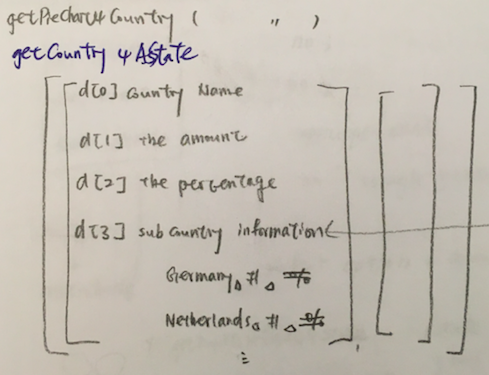 getPiechart4Country ( " )
getCountry 4 AState
d[0] Country Name
d[1] the amount
d[2] the percentage
d[3] sub Country information
Germany, #,
Netherlands, #,